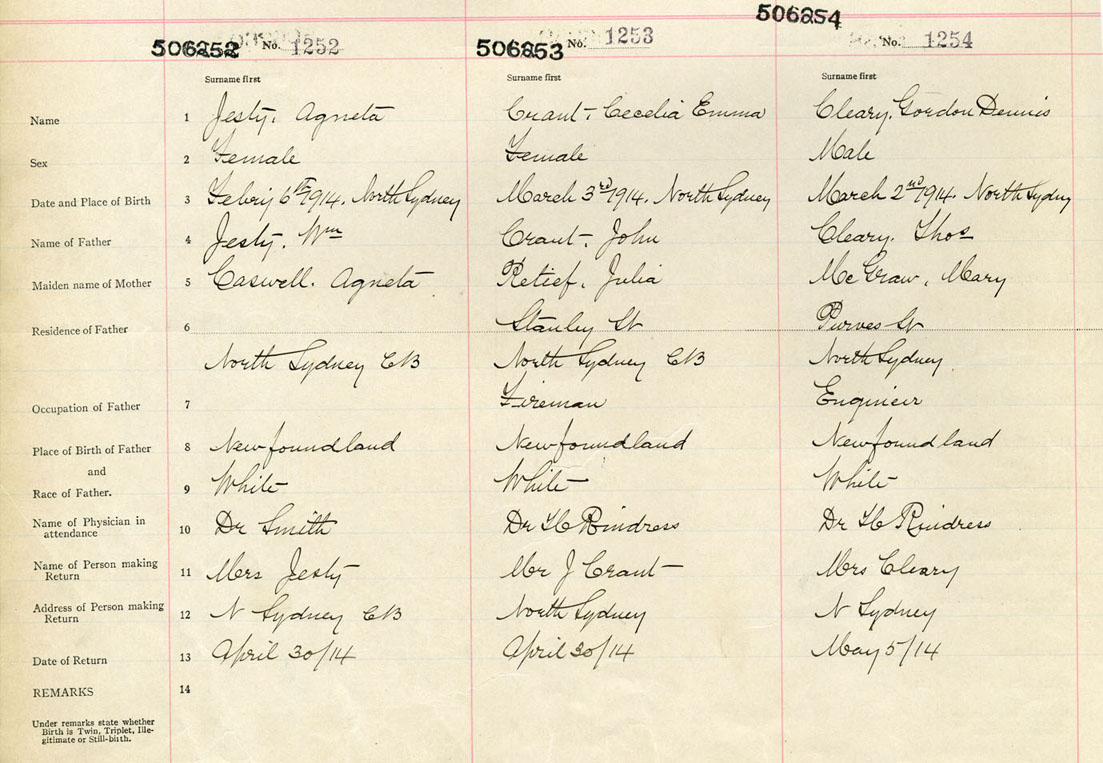 506254
506252 No. 1252 506253 No. 1253 No. 1254
Surname first Surname first Surname first
Name 1 Jesty, Agneta Grant, Cecelia Emma Cleary, Gordon Dennis
Sex 2 Female Female Male
Date and Place of Birth 3 Febry 6th 1914. North Sydney March 3rd 1914. North Sydney March 2nd 1914. North Sydney
Name of Father 4 Jesty, Wm Grant, John Cleary, Thos
Maiden name of Mother 5 Caswell. Agneta Retief, Julia McGraw, Mary
Residence of Father 6 Stanley St Purves St
North Sydney CB North Sydney CB North Sydney
Occupation of Father 7 Fireman Engineer
Place of Birth of Father 8 Newfoundland Newfoundland Newfoundland
and
Race of Father. 9 White White White
Name of Physician in
attendance 10 Dr Smith Dr Rindress Dr Rindress
Name of Person making
Return 11 Mrs Jesty Mr J Grant Mrs Cleary
Address of Person making
Return 12 N Sydney CB North Sydney N Sydney
Date of Return 13 April 30/14 April 30/14 May 5/14
REMARKS 14
Under remarks state whether
Birth is Twin, Triplet, Ille-
gitimate or Still-birth.